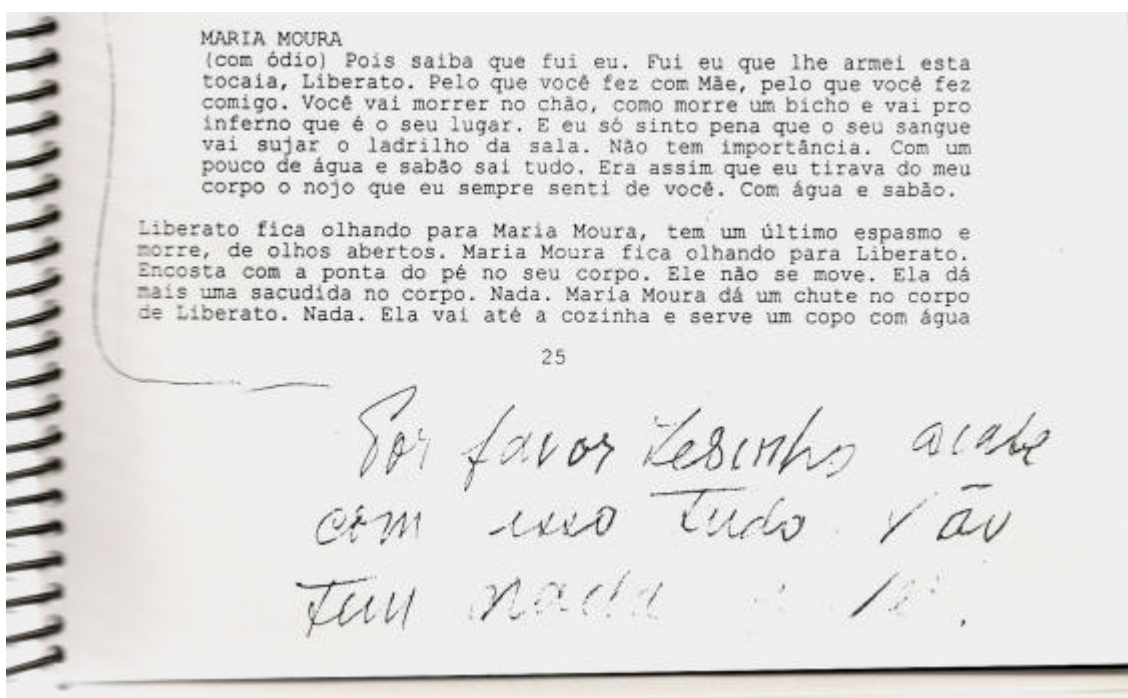 MARIA MOURA
(com ódio) Pois saiba que fui eu. Fui eu que lhe armei esta
tocaia, Liberato. Pelo que você fez com Mãe, pelo que você fez
comigo. Você vai morrer no chão, como morre um bicho e vai pro
inferno que é o seu lugar. E eu só sinto pena que o seu sangue
vai sujar o ladrilho da sala. Não tem importância. Com um
pouco de água e sabão sai tudo. Era assim que eu tirava do meu
corpo o nojo que eu sempre senti de você. Com água e sabão.
Liberato fica olhando para Maria Moura, tem um último espasmo e
morre, de olhos abertos. Maria Moura fica olhando para Liberato.
Encosta com a ponta do pé no seu corpo. Ele não se move. Ela dá
mais uma sacudida no corpo. Nada. Maria Moura dá um chute no corpo
de Liberato. Nada. Ela vai até a cozinha e serve um copo com água
25
Por favor acabe
com isso tudo Não
tem nada